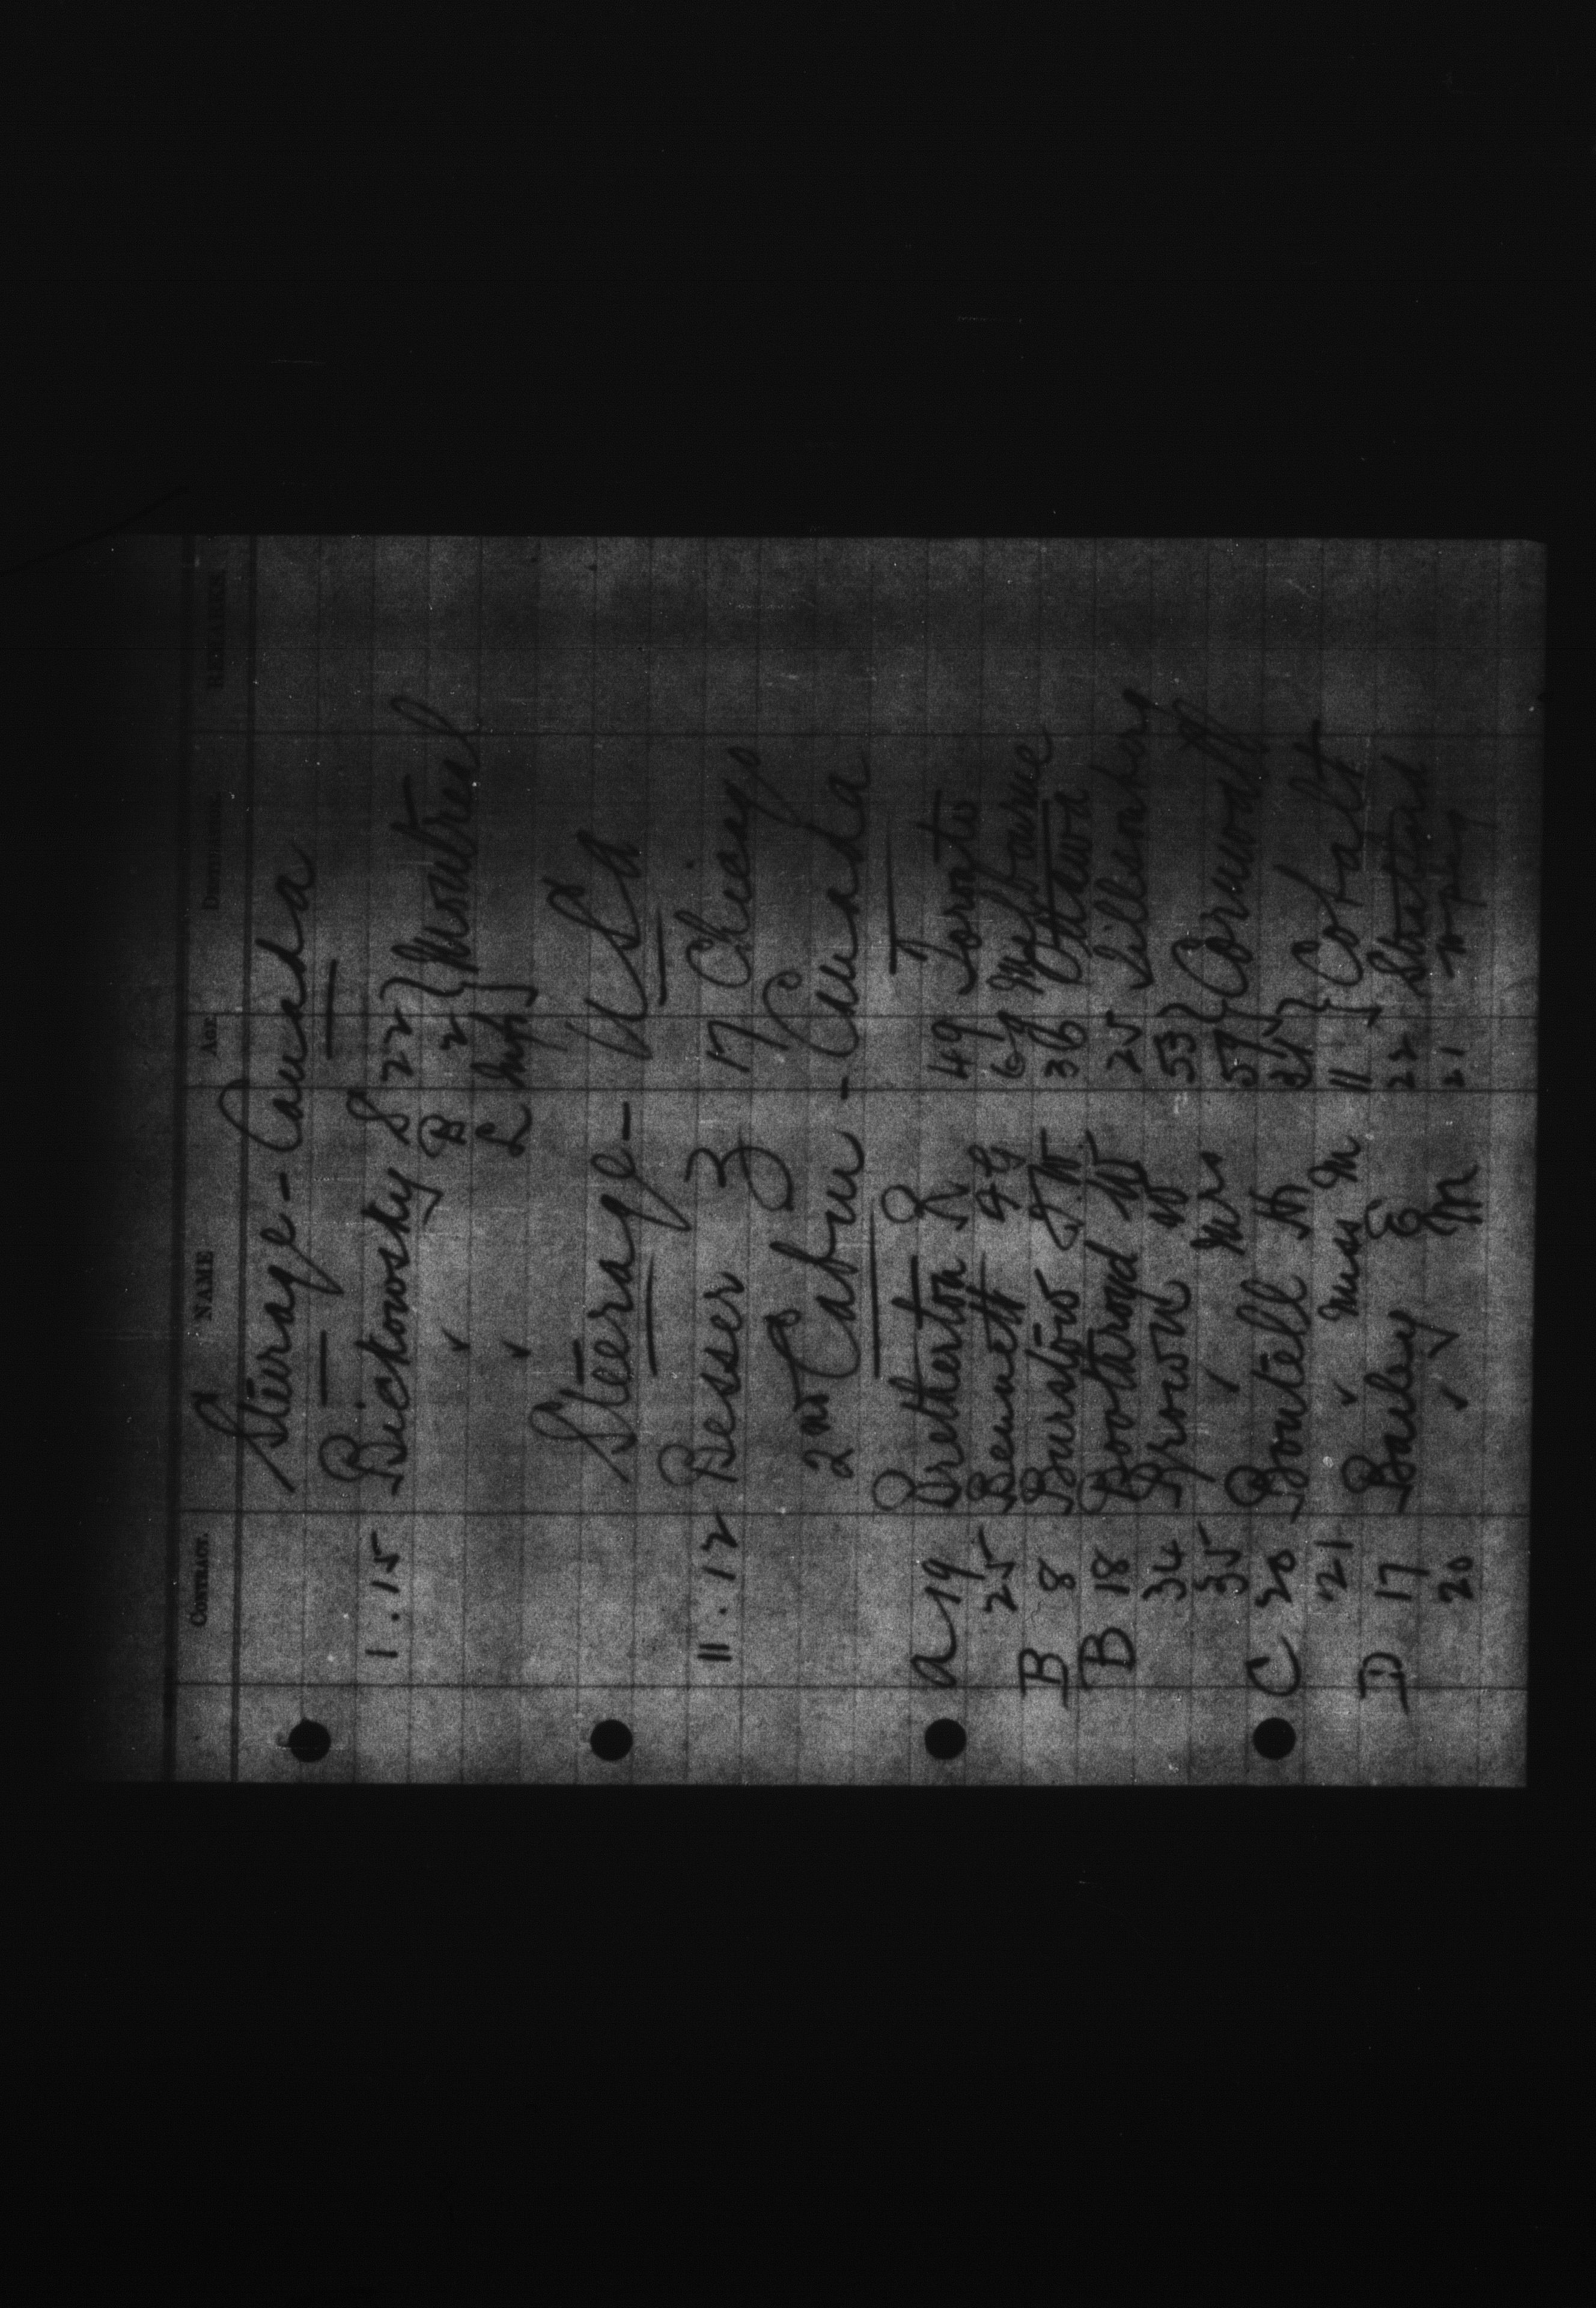 CONTRACT. NAME AGE DESTINATION. REMARKS
Steerage - Canada
1.15 Bickowsky S 22 } Montreal
✓ B 2
✓ L Inf
Steerage - USA
11.12 Besser Z 17 Chicago
2nd Cabin - Canada
A 19 Bretherton R 49 Toronto
25 Bennett 69 Melbourne
B 8 Burstow J.W. 36 Ottawa
B 18 Boothroyd W 25 Tillsonburg
34 Brown W 53 } Cornwall
35 ✓ Mrs
C 20 Boutell } Cobalt
21 ✓ Miss M 11
D 17 Bailey E 22 Stratford
20 ✓ M 21